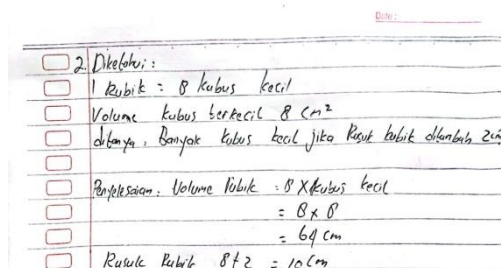 Date:
2. Diketahui:
1 Rubik = 8 kubus kecil
Volume kubus terkecil 8 cm²
ditanya, Banyak kubus kecil jika Rusuk kubik ditambah 2cm
Penyelesaian: Volume Rubik = 8 X kubus kecil
= 8 x 8
= 64 cm
Rusuk Rubik 8+2 = 10 cm